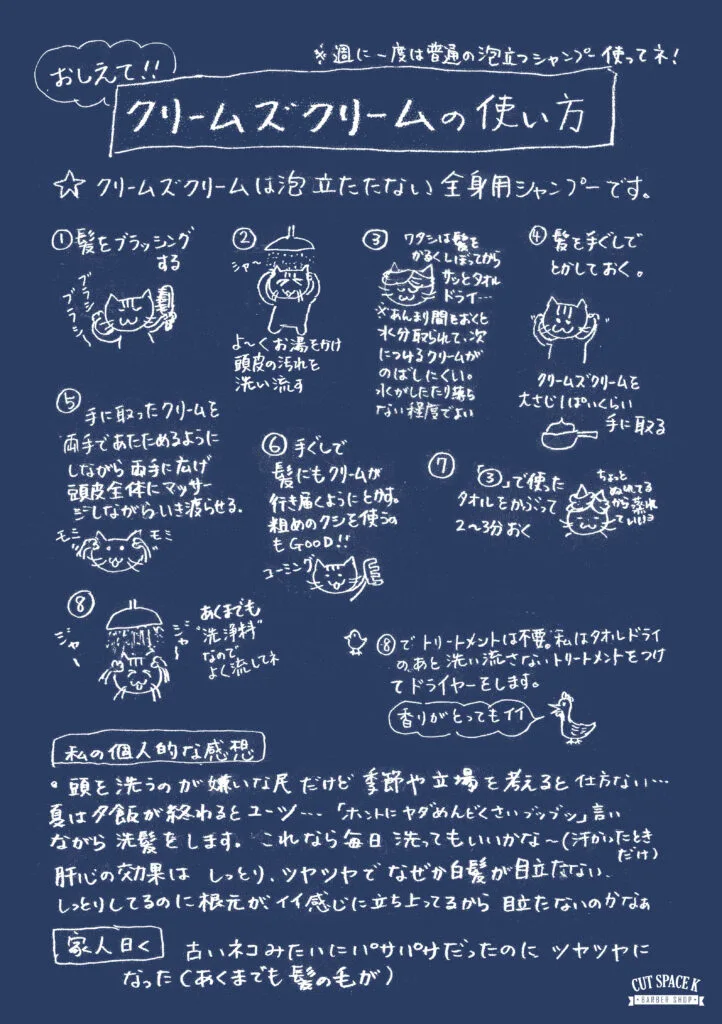 ※週に一度は普通の泡立つシャンプー使ってネ!
おしえて!!
クリームズクリームの使い方
☆ クリームズクリームは泡立たたない全身用シャンプーです。
① 髪をブラッシング
する
ブラシ
ブラシ
②
シャー
よ〜くお湯をかけ
頭皮の汚れを
洗い流す
③ ワタシは髪を
かるくしぼってから
サッとタオル
ドライ…
※あんまり間をおくと
水分取られて、次
につけるクリームが
のばしにくい。
水がしたたり落ち
ない程度でよい
④ 髪を手ぐしで
とかしておく。
クリームズクリームを
大さじ1ぱいくらい
手に取る
⑤ 手に取ったクリームを
両手であたためるように
しながら両手に広げ
頭皮全体にマッサー
ジしながらいき渡らせる。
モミ モミ
⑥ 手ぐしで
髪にもクリームが
行き届くようにとかす。
粗めのクシを使うの
もGOOD!!
コーミング
⑦ 「③」で使った
タオルをかぶって
2〜3分おく
ちょっと
ぬれてる
から蒸れ
ていいョ
⑧
ジャー
ジャー
あくまでも
"洗浄料"
なので
よく流してネ
⑧でトリートメントは不要。私はタオルドライ
のあと洗い流さないトリートメントをつけ
てドライヤーをします。
香りがとってもイイ
私の個人的な感想
• 頭を洗うのが嫌いな民だけど季節や立場を考えると仕方ない…
夏は夕飯が終わるとユーツ…「ホントにヤダめんどくさいブツブツ」言い
ながら洗髪をします。これなら毎日洗ってもいいかな〜(汗かったとき
だけ)
肝心の効果は しっとり、ツヤツヤでなぜか白髪が目立たない、
しっとりしてるのに根元がイイ感じに立ち上ってるから目立たないのかなぁ
家人曰く 古いネコみたいにパサパサだったのにツヤツヤに
なった(あくまでも髪の毛が)
CUT SPACE K
BARBER SHOP